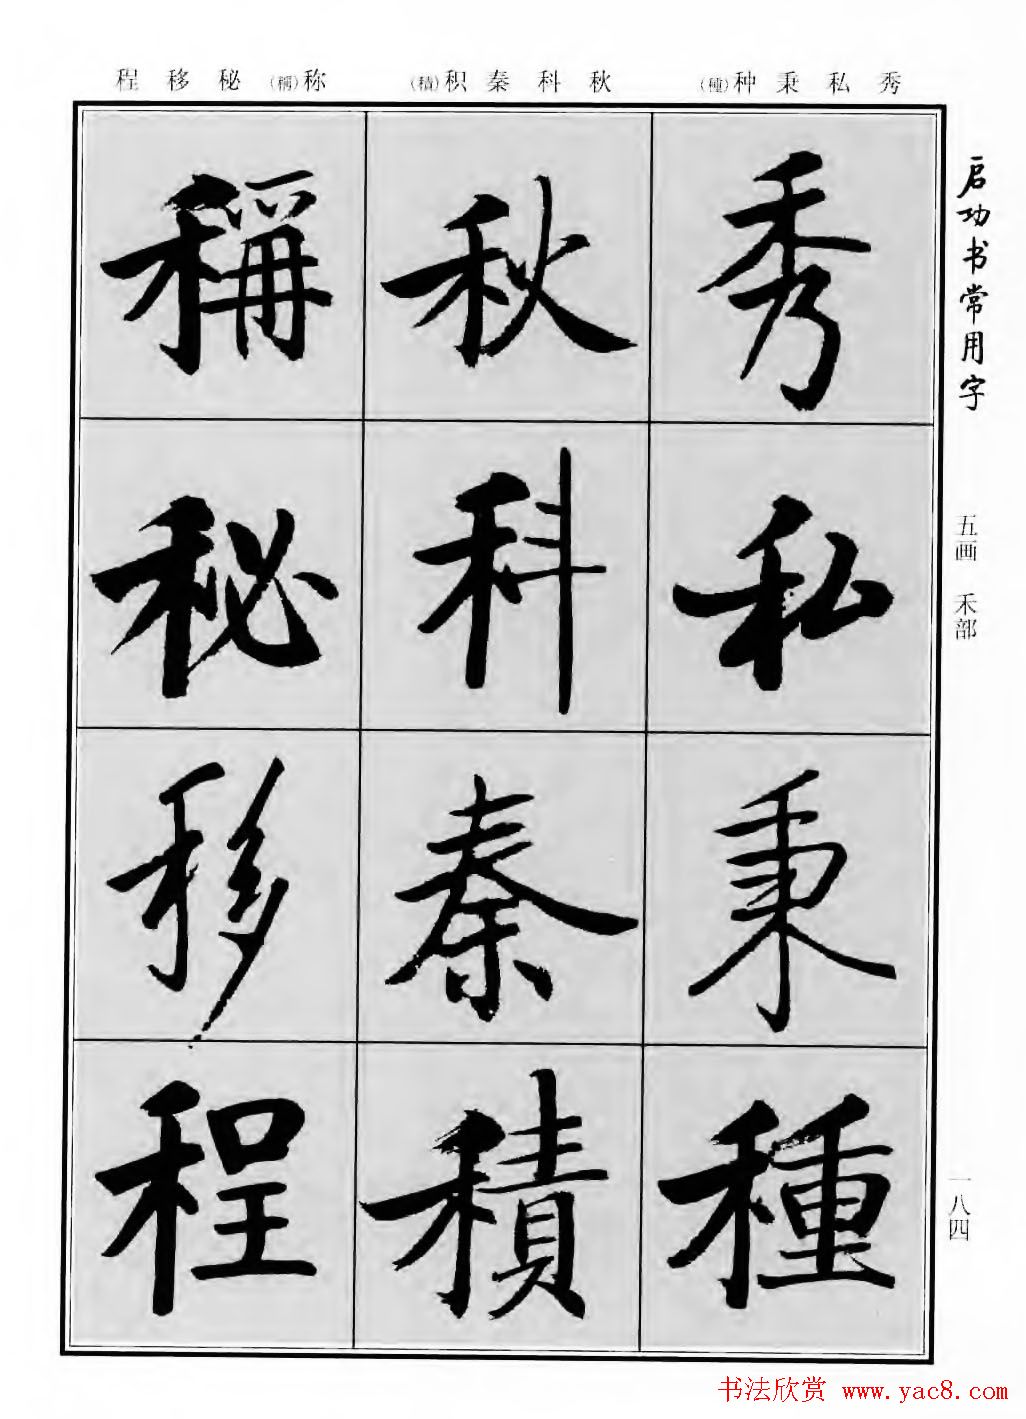 秀私秉种(種) 秋科秦积(積) 称(稱)秘移程
启功书常用字
五画 禾部
一八四
秀私秉種
秋科秦積
稱秘移程
书法欣赏 www.yac8.com